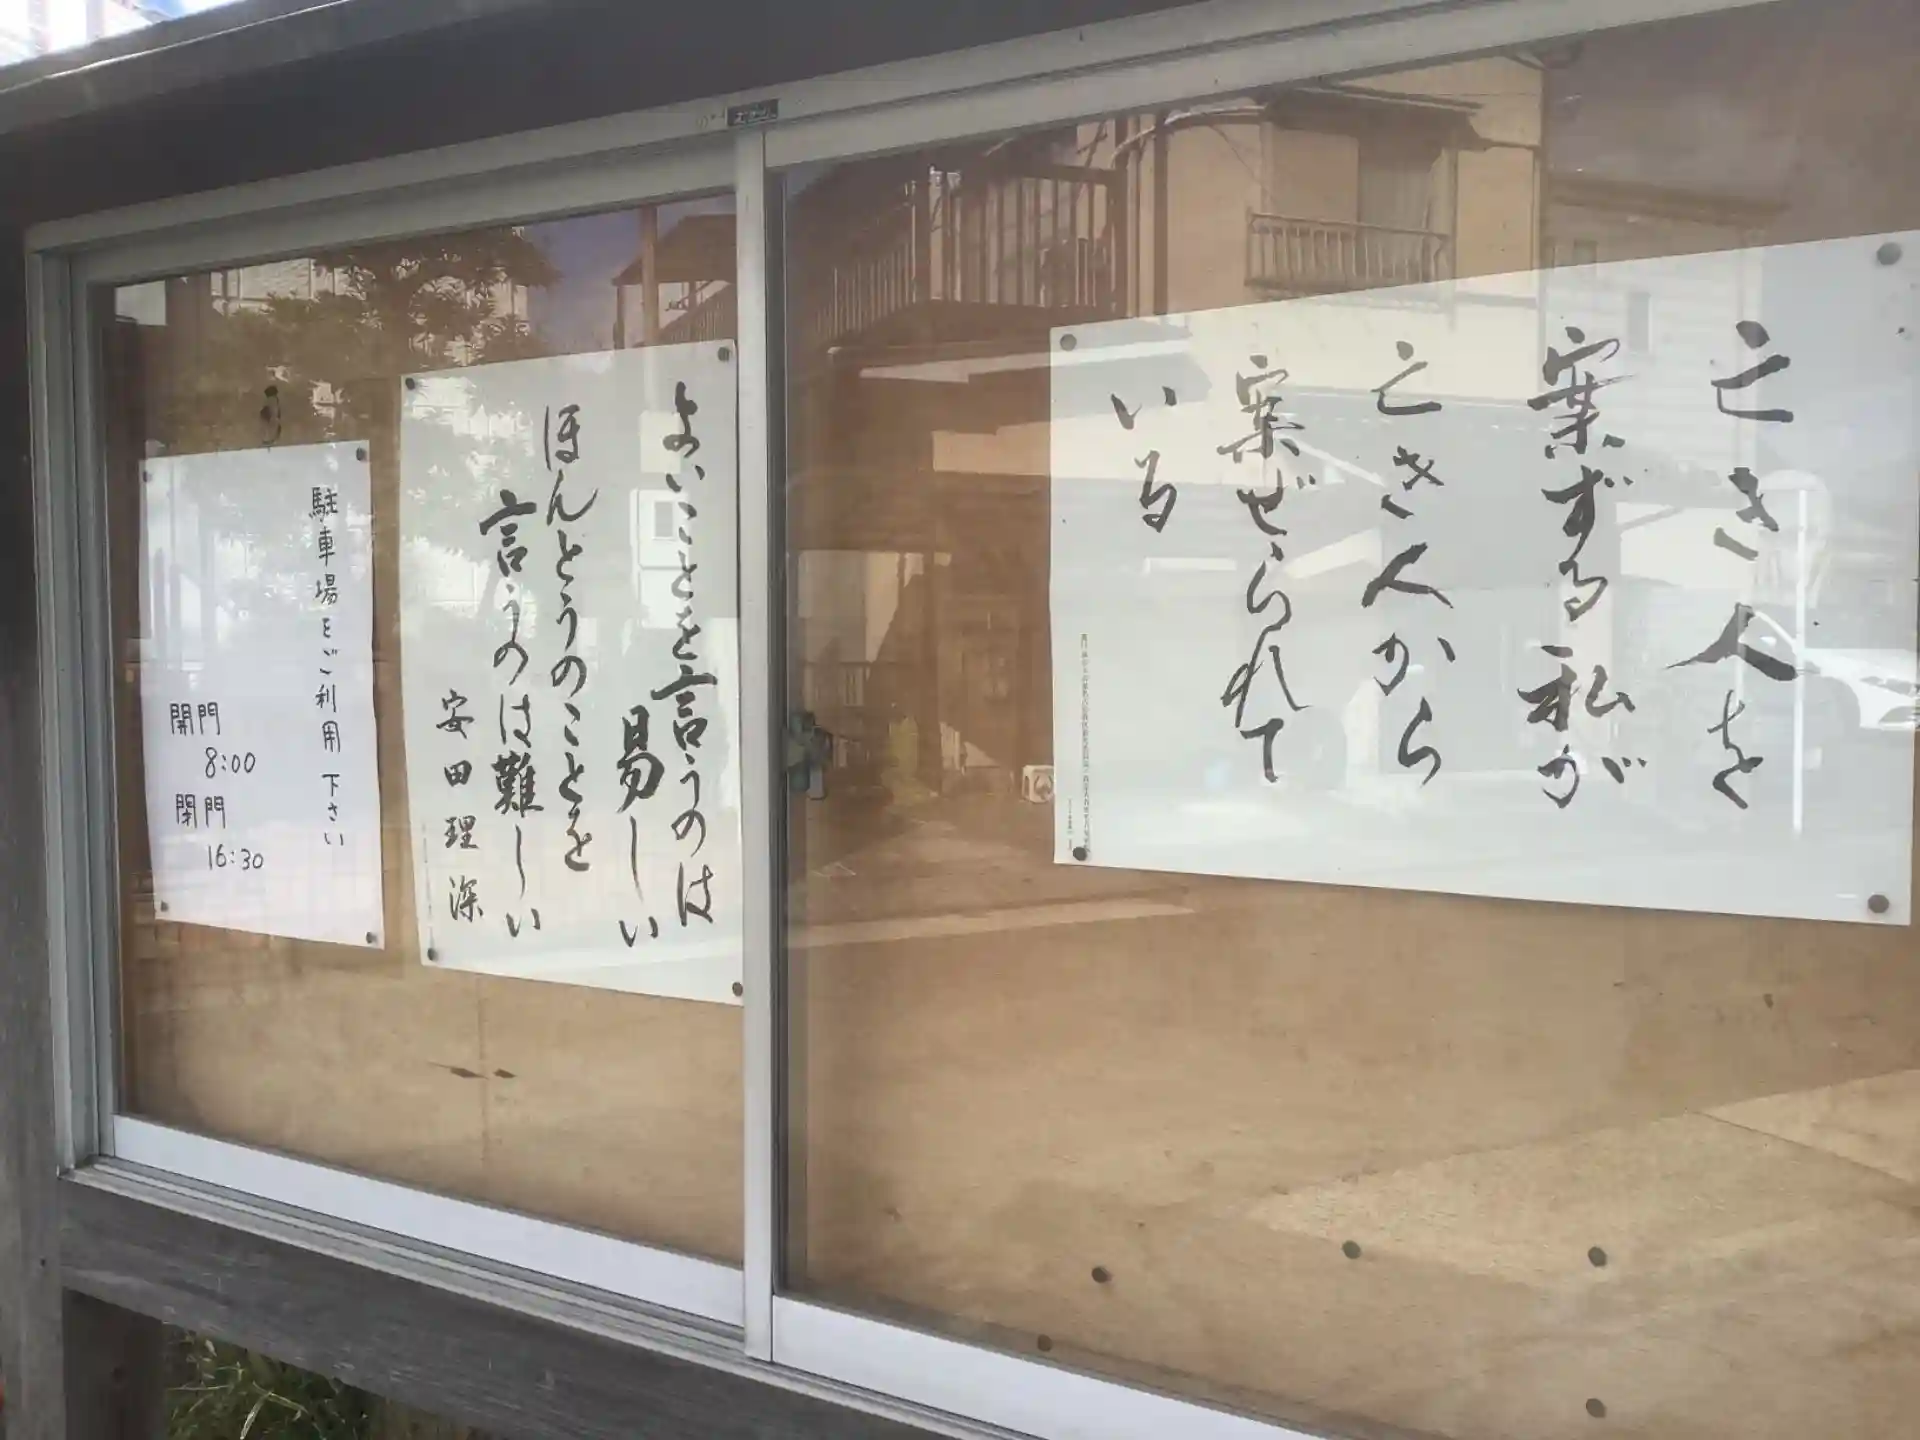 亡き人を
案ずる私が
亡き人から
案ぜられて
いる
よいことを言うのは
易しい
ほんとうのことを
言うのは難しい
安田理深
駐車場をご利用下さい
開門
8:00
閉門
16:30